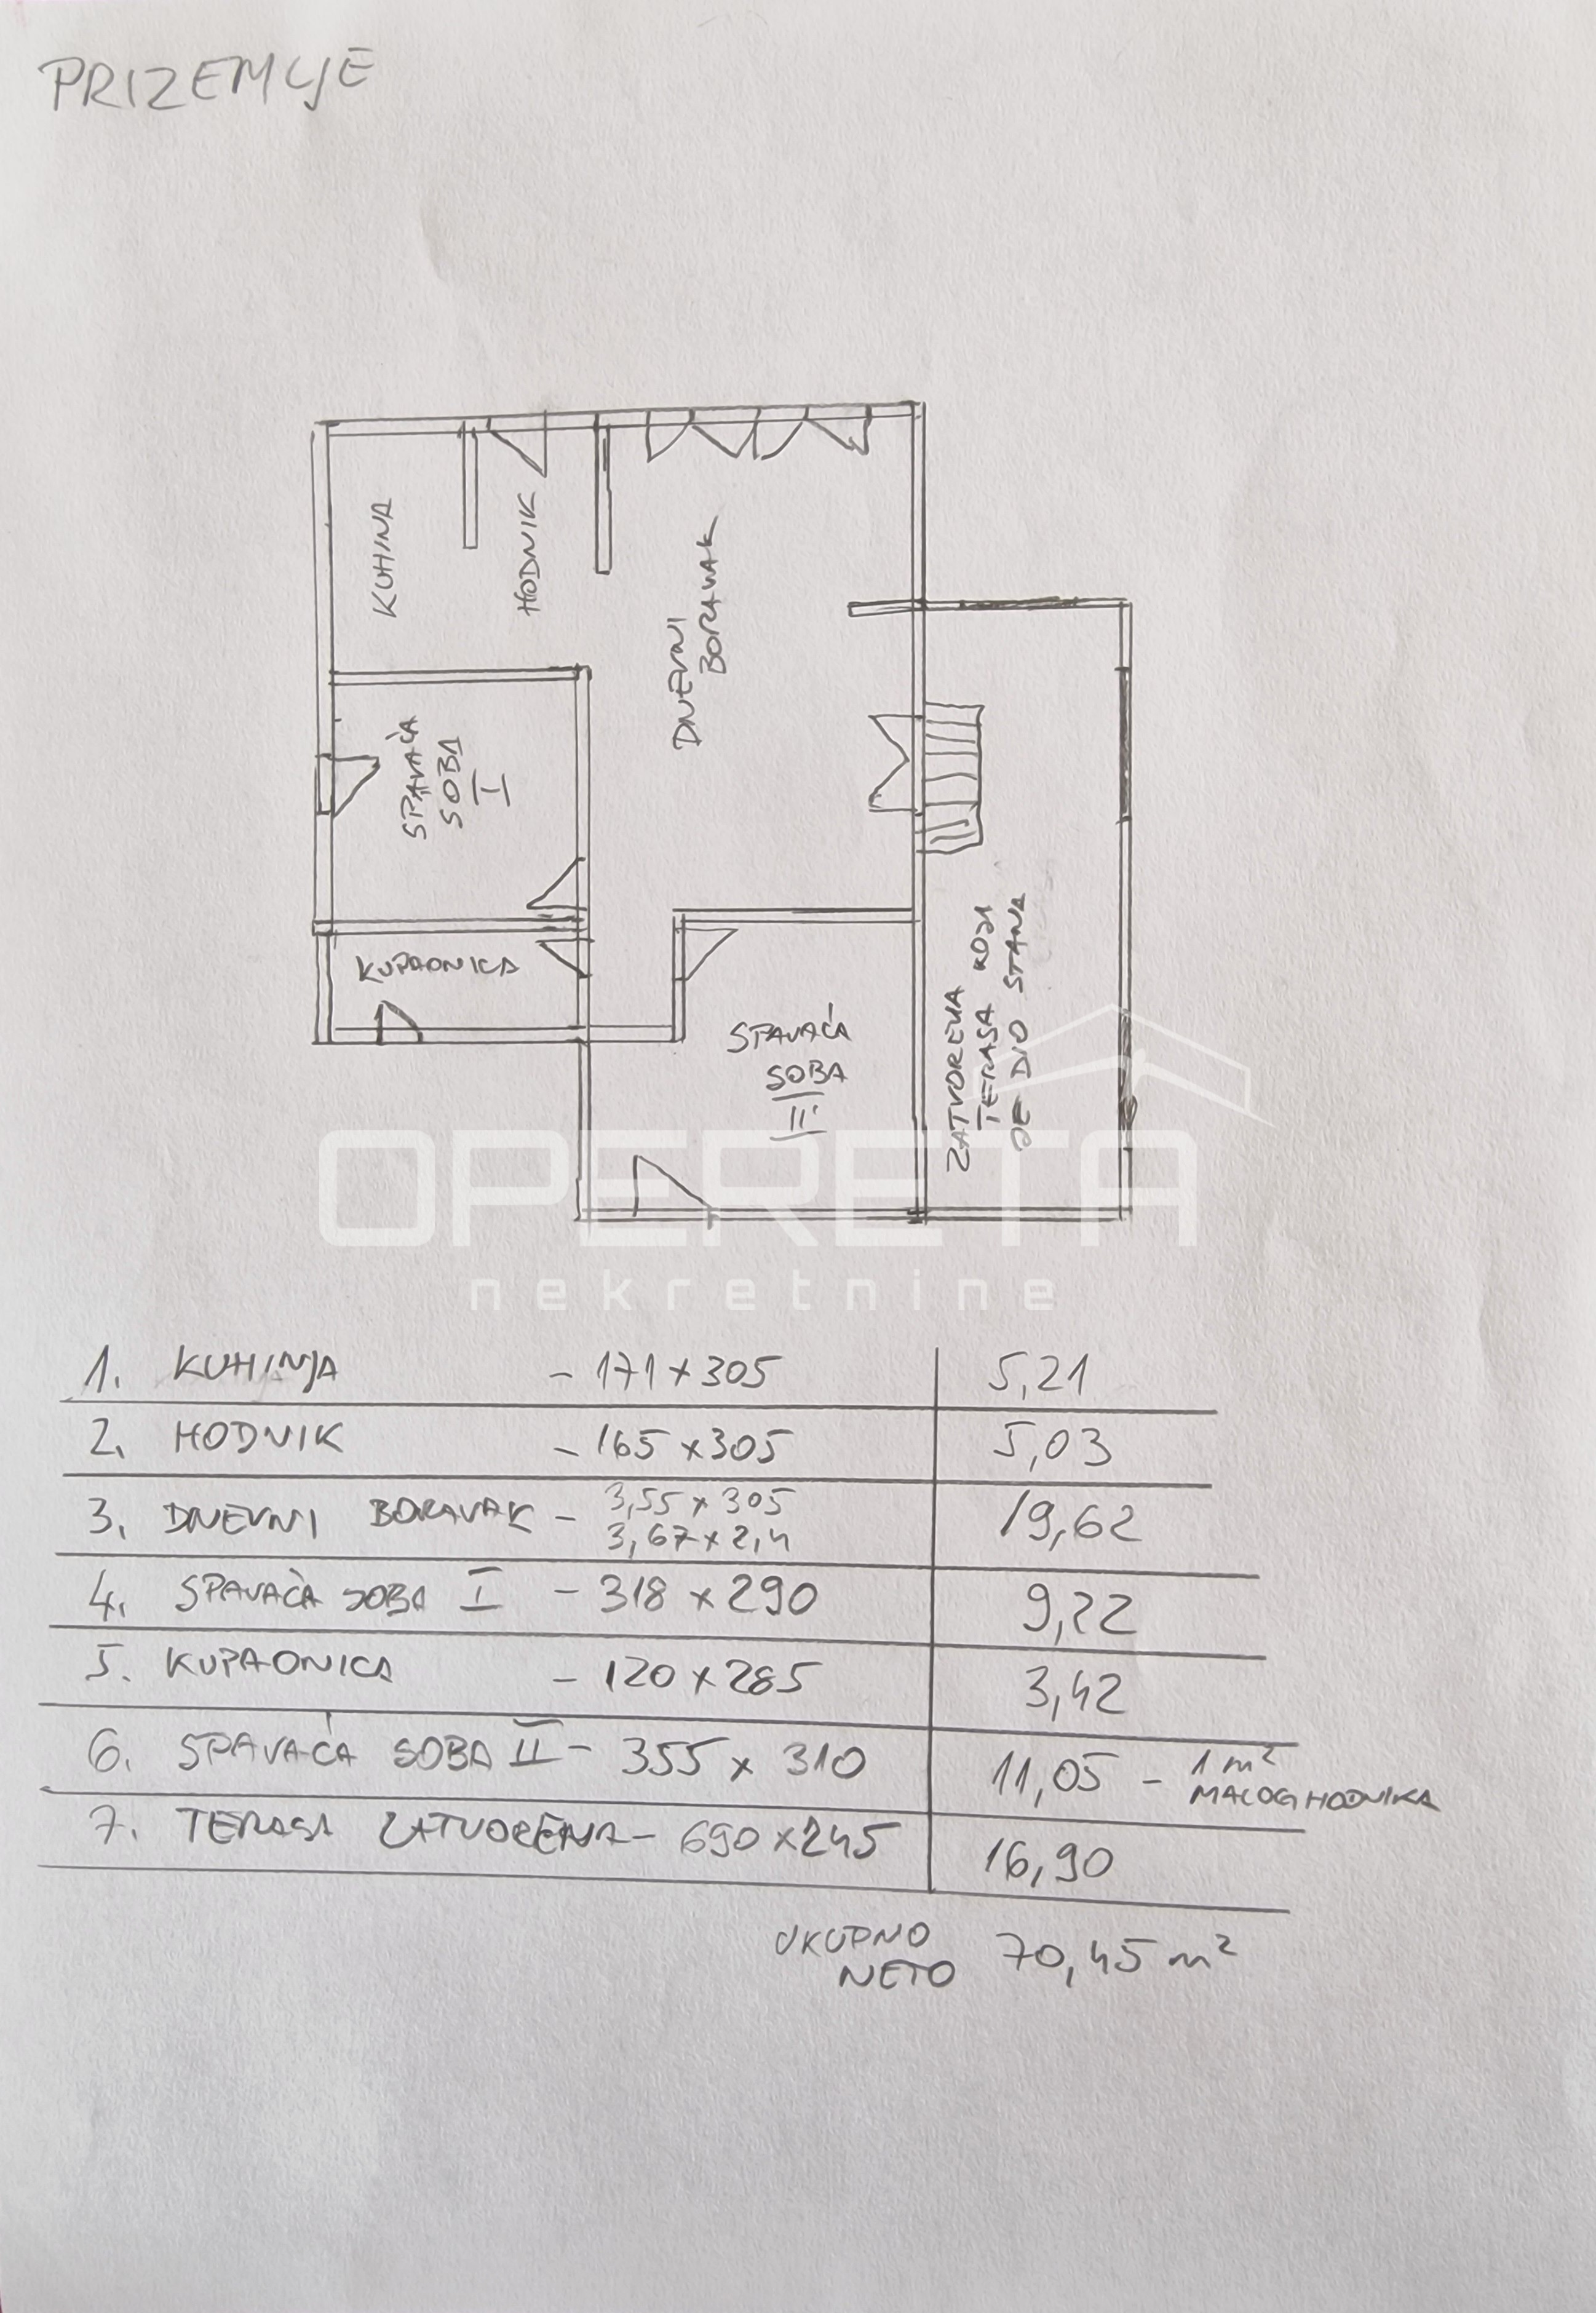 PRIZEMLJE
KUHINA
HODNIK
DNEVNI
BORAVAK
SPAVAĆA
SOBA
I
KUPAONICA
SPAVAĆA
SOBA
II
ZATVORENA
TERASA KOJA
JE DIO STANA
OPERETA
nekretnine
1. KUHINJA - 171 x 305 5,21
2. HODNIK - 165 x 305 5,03
3. DNEVNI BORAVAK - 3,55 x 305 19,62
3,67 x 2,4
4. SPAVAĆA SOBA I - 318 x 290 9,22
5. KUPAONICA - 120 x 285 3,42
6. SPAVAĆA SOBA II - 355 x 310 11,05 - 1 m²
MALOG HODNIKA
7. TERASA ZATVORENA - 690 x 245 16,90
UKUPNO
NETO 70,45 m²